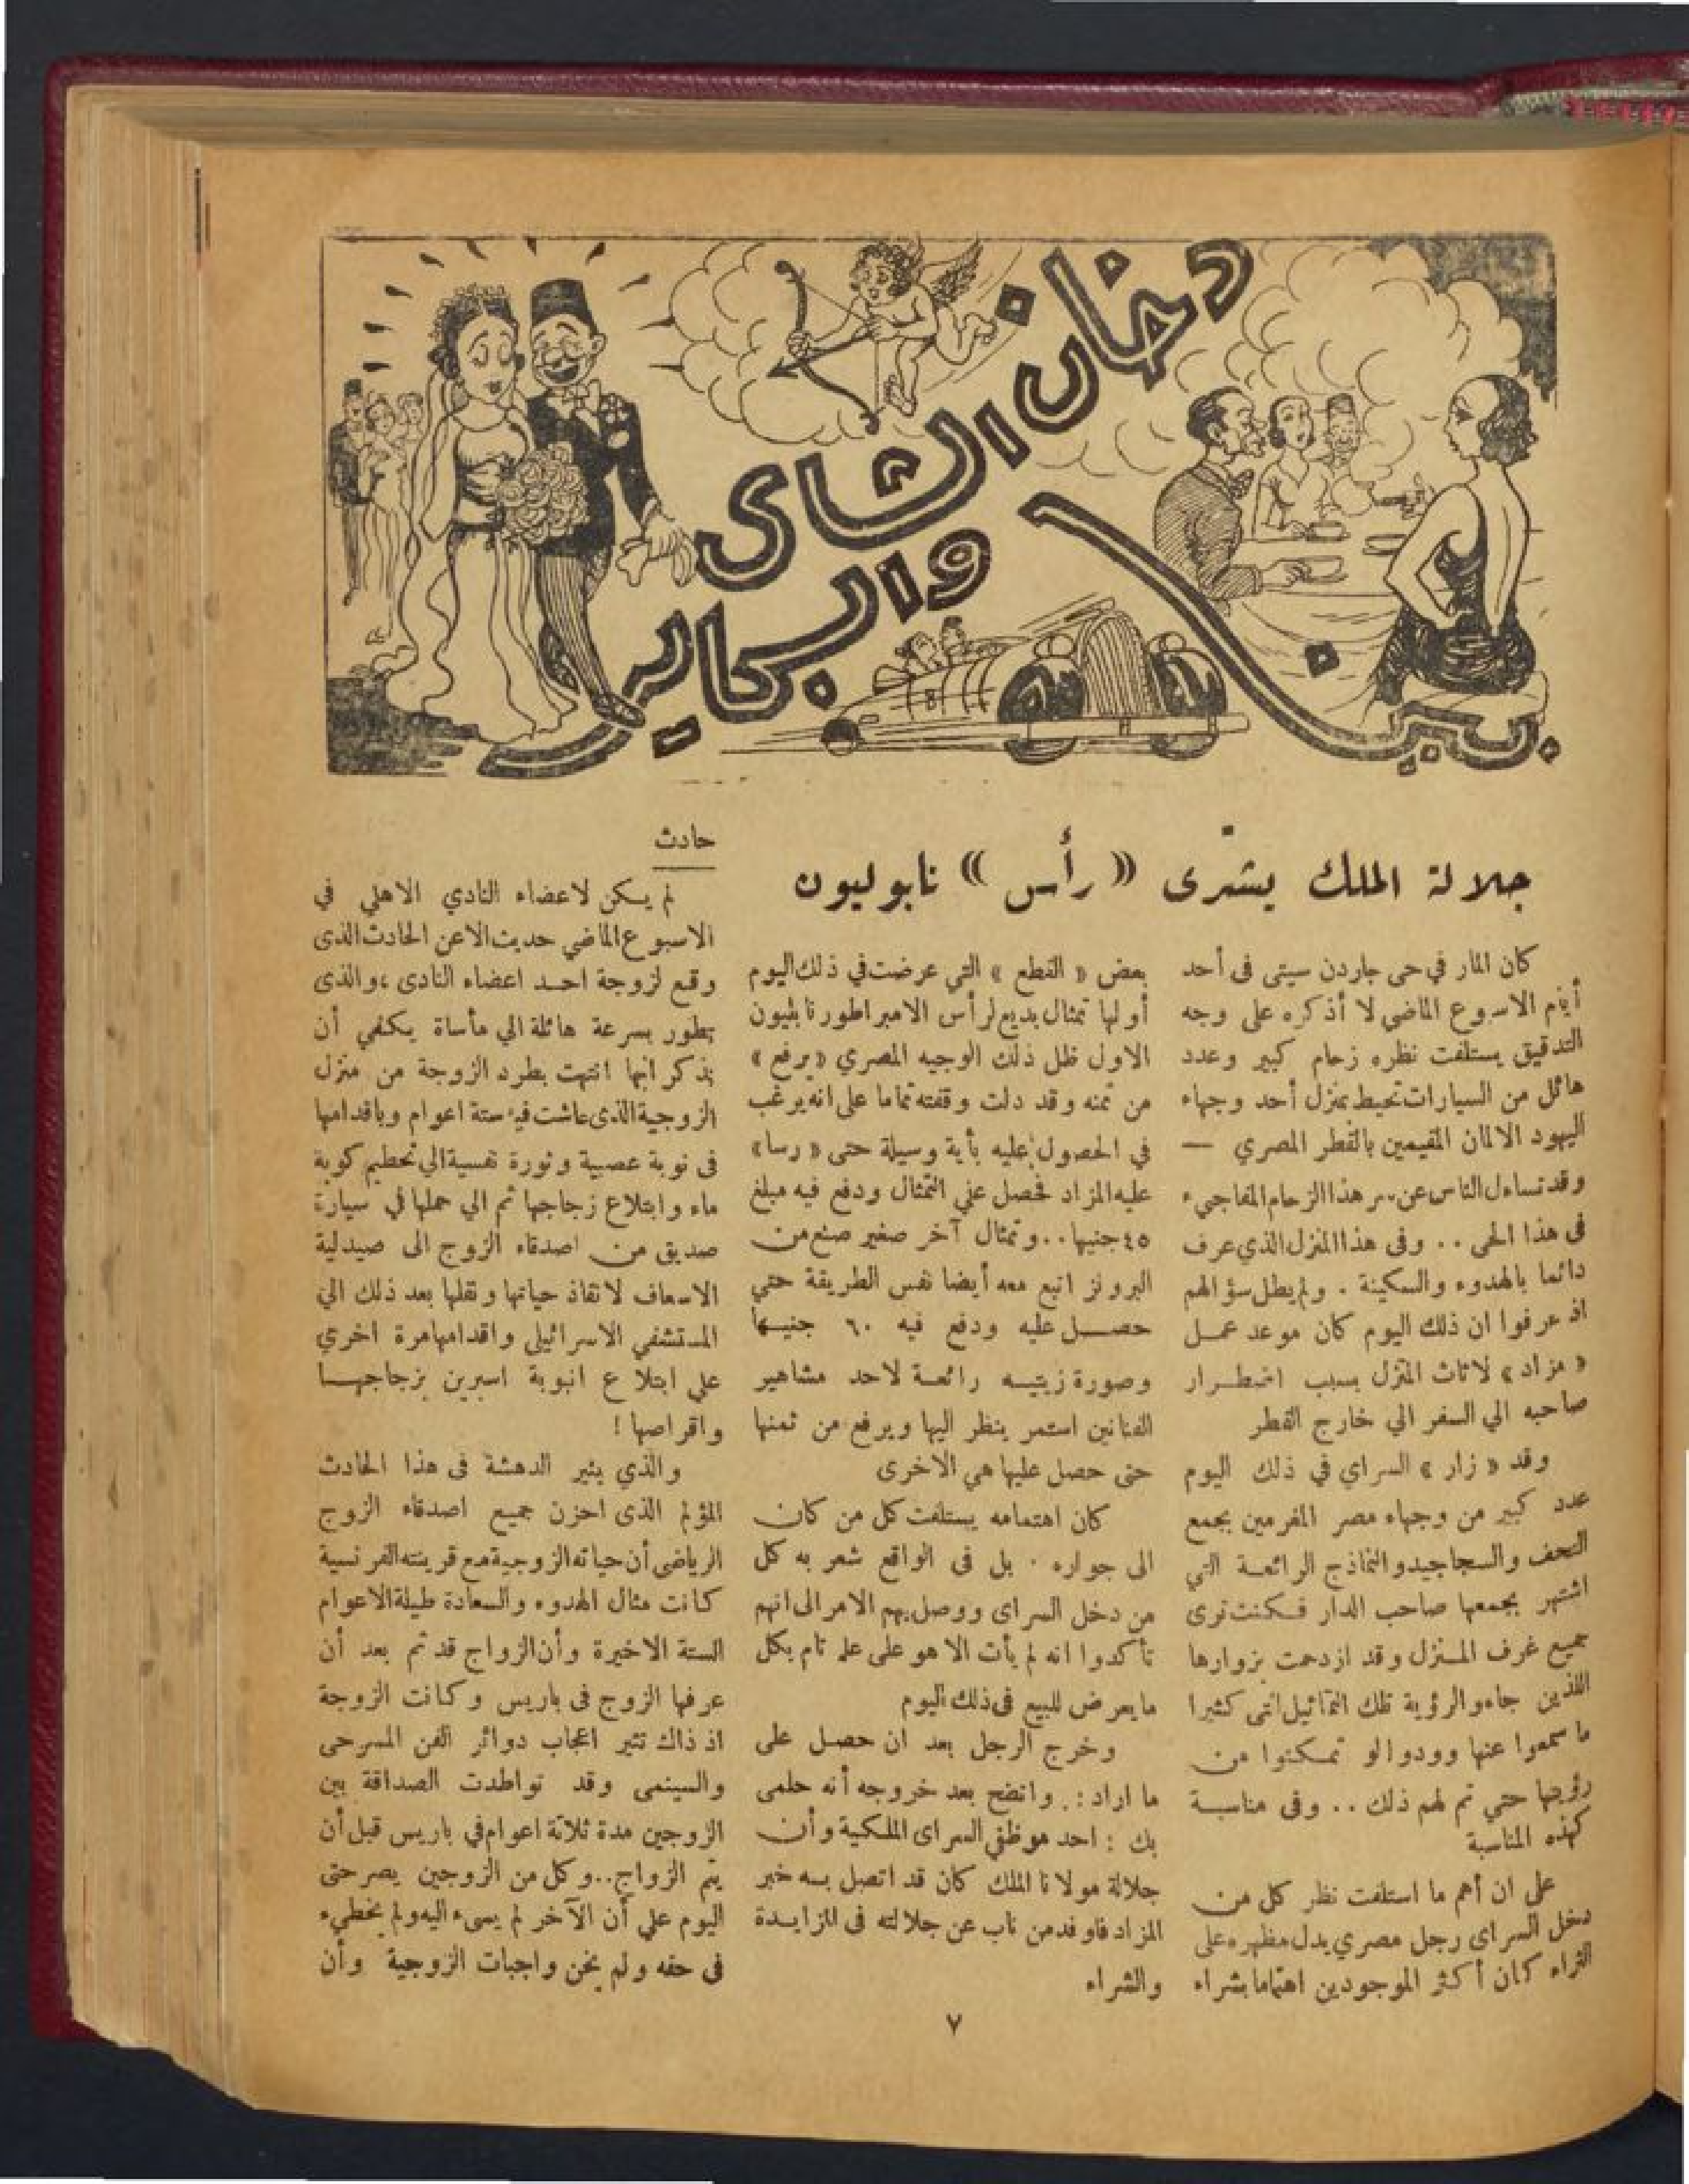 بين
دخان الشاى
والبكاير
جلالة الملك يشترى « رأس » نابوليون
كان المار في حى جاردن سيتى فى أحد
أيام الاسبوع الماضى لا أذكره على وجه
التدقيق يستلفت نظره زحام كبير وعدد
هائل من السيارات تحيط بمنزل أحد وجهاء
اليهود الالمان المقيمين بالقطر المصري —
وقد تساءل الناس عن سر هذا الزحام المفاجيء
فى هذا الحى .. وفى هذا المنزل الذي عرف
دائما بالهدوء والسكينة . ولم يطل سؤالهم
اذ عرفوا ان ذلك اليوم كان موعد عمل
« مزاد » لاثاث المنزل بسبب اضطرار
صاحبه الي السفر الي خارج القطر
وقد « زار » السراي في ذلك اليوم
عدد كبير من وجهاء مصر المغرمين بجمع
التحف والسجاجيد والنماذج الرائعة التي
اشتهر بجمعها صاحب الدار فكنت ترى
جميع غرف المنزل وقد ازدحمت بزوارها
اللذين جاءو الرؤية تلك التماثيل التى كثيرا
ما سمعوا عنها وودوا لو تمكنوا من
رؤيتها حتي تم لهم ذلك .. وفى مناسبة
كهذه المناسبة
على ان أهم ما استلفت نظر كل من
دخل السراى رجل مصري يدل مظهره على
الثراء كان أكثر الموجودين اهتماما بشراء
بعض « القطع » التي عرضت في ذلك اليوم
أولها تمثال بديع لرأس الامبراطور نابليون
الاول ظل ذلك الوجيه المصري « يرفع »
من ثمنه وقد دلت وقفته تماما على انه يرغب
في الحصول عليه بأية وسيلة حتى « رسا »
عليه المزاد فحصل علي التمثال ودفع فيه مبلغ
٤٥ جنيها .. وتمثال آخر صغير صنع من
البرونز اتبع معه أيضا نفس الطريقة حتي
حصل عليه ودفع فيه ٦٠ جنيها
وصورة زيتيه رائعة لاحد مشاهير
الفنانين استمر ينظر اليها ويرفع من ثمنها
حتى حصل عليها هي الاخرى
كان اهتمامه يستلفت كل من كان
الى جواره . بل فى الواقع شعر به كل
من دخل السراى ووصل بهم الامر الى انهم
تأكدوا انه لم يأت الا هو على علم تام بكل
ما يعرض للبيع فى ذلك اليوم
وخرج الرجل بعد ان حصل على
ما اراد : . واتضح بعد خروجه أنه حلمى
بك : احد موظفي السراى الملكية وأن
جلالة مولانا الملك كان قد اتصل به خبر
المزاد فاوفد من ناب عن جلالته فى المزايدة
والشراء
حادث
لم يكن لاعضاء النادي الاهلي في
الاسبوع الماضي حديث الا عن الحادث الذى
وقع لزوجة احد اعضاء النادى ، والذى
تطور بسرعة هائلة الي مأساة يكفي أن
نذكر انها انتهت بطرد الزوجة من منزل
الزوجية الذى عاشت فيه ستة اعوام وباقدامها
فى نوبة عصبية وثورة نفسية الي تحطيم كوبة
ماء وابتلاع زجاجها ثم الي حملها في سيارة
صديق من اصدقاء الزوج الى صيدلية
الاسعاف لانقاذ حياتها ونقلها بعد ذلك الي
المستشفي الاسرائيلى واقدامها مرة اخري
علي ابتلاع انبوبة اسبرين بزجاجها
واقراصها !
والذي يثير الدهشة فى هذا الحادث
المؤلم الذى احزن جميع اصدقاء الزوج
الرياضى أن حياته الزوجية مع قرينته الفرنسية
كانت مثال الهدوء والسعادة طيلة الاعوام
الستة الاخيرة وأن الزواج قد تم بعد أن
عرفها الزوج فى باريس وكانت الزوجة
اذ ذاك تثير اعجاب دوائر الفن المسرحى
والسينمى وقد توطدت الصداقة بين
الزوجين مدة ثلاثة اعوام في باريس قبل أن
يتم الزواج .. وكل من الزوجين يصر حتى
اليوم علي أن الآخر لم يسىء اليه ولم يخطيء
فى حقه ولم يخن واجبات الزوجية وأن
٧